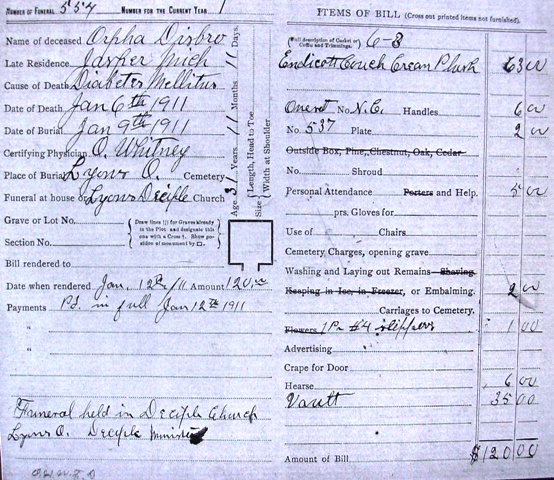 NUMBER OF FUNERAL 557 NUMBER FOR THE CURRENT YEAR 1
Name of deceased Orpha Disbro
Late Residence Jasper Mich
Cause of Death Diabetes Mellitus
Date of Death Jan 6th 1911
Date of Burial Jan 9th 1911
Certifying Physician O. Whitney
Place of Burial Lyons O. Cemetery
Funeral at house or Lyons Deciple Church
Age 31 Years 11 Months 11 Days.
Size { Length, Head to Toe
Width at Shoulder
Grave or Lot No.
Section No.
Draw lines ||| for Graves already
in the Plot and designate this
one with a Cross †. Show position
of monument by □.
Bill rendered to
Date when rendered Jan. 12th/11 Amount 120.00
Payments Pd. in full Jan 12th 1911
"
"
Funeral held in Deciple Church
Lyons O. Deciple Minister
ITEMS OF BILL (Cross out printed items not furnished).
(Full description of Casket or Coffin and Trimmings.) 6-3
Endicott Couch Cream Plush 63 00
No. N.C. Handles 6 00
No. 537 Plate 2 00
Outside Box, Pine, Chestnut, Oak, Cedar
No. Shroud
Personal Attendance Porters and Help. 5 00
prs. Gloves for
Use of Chairs
Cemetery Charges, opening grave
Washing and Laying out Remains Shaving
Keeping in Ice, in Freezer, or Embalming. 2 00
Carriages to Cemetery.
Flowers 1 Pr #4 slippers 1 00
Advertising
Crape for Door
Hearse 6 00
Vault 35 00
Amount of Bill $120 00